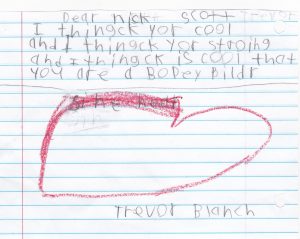 Dear nick scott Trevor
I thingck yor cool
and I thingck yor stroing
and I thingck is cool that
you are a BoDey Bildr
Trevor Blanch